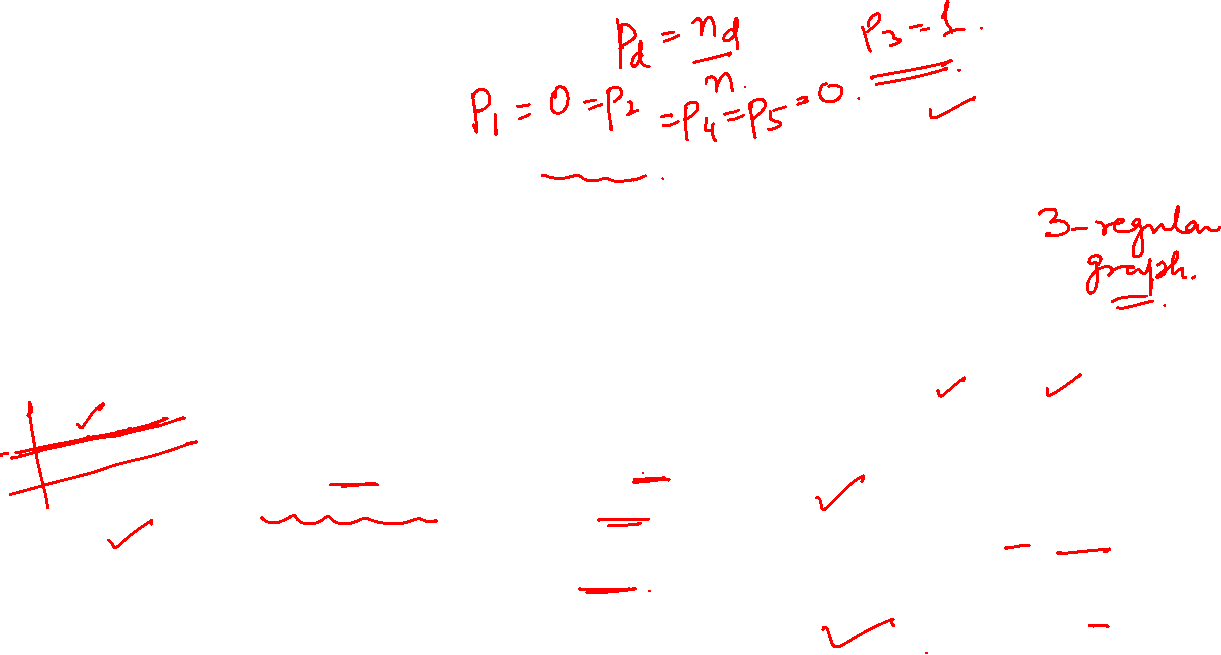 P_d = n_d / n. P_3 = 1.
P_1 = 0 = P_2 = P_4 = P_5 = 0.
3-regular
graph.